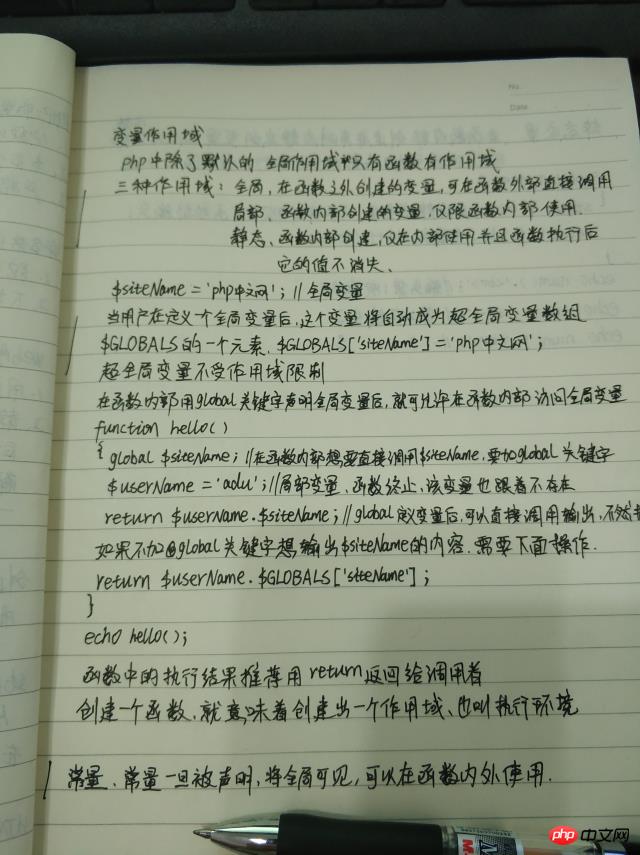 No.
Date
变量作用域
php中除了默认的全局作用域中只有函数有作用域
三种作用域：全局，在函数之外创建的变量，可在函数外部直接调用
局部、函数内部创建的变量，仅限函数内部使用.
静态、函数内部创建，仅在内部使用并且函数执行后
它的值不消失、
$siteName = 'php中文网'; //全局变量
当用户在定义一个全局变量后，这个变量将自动成为超全局变量数组
$GLOBALS的一个元素，$GLOBALS['siteName'] = 'php中文网';
超全局变量不受作用域限制
在函数内部用global关键字声明全局变量后，就可允许在函数内部访问全局变量
function hello()
{ global $siteName; //在函数内部想要直接调用$siteName，要加global关键字
$userName = 'adu'; //局部变量、函数终止，该变量也跟着不存在
return $userName.$siteName; //global定义变量后，可以直接调用输出，不然
如果不加global关键字想输出$siteName的内容.需要下面操作.
return $userName.$GLOBALS['siteName'];
}
echo hello();
函数中的执行结果推荐用return返回给调用者
创建一个函数，就意味着创建出一个作用域、也叫执行环境
常量、常量一旦被声明，将全局可见，可以在函数内外使用.
php 中文网